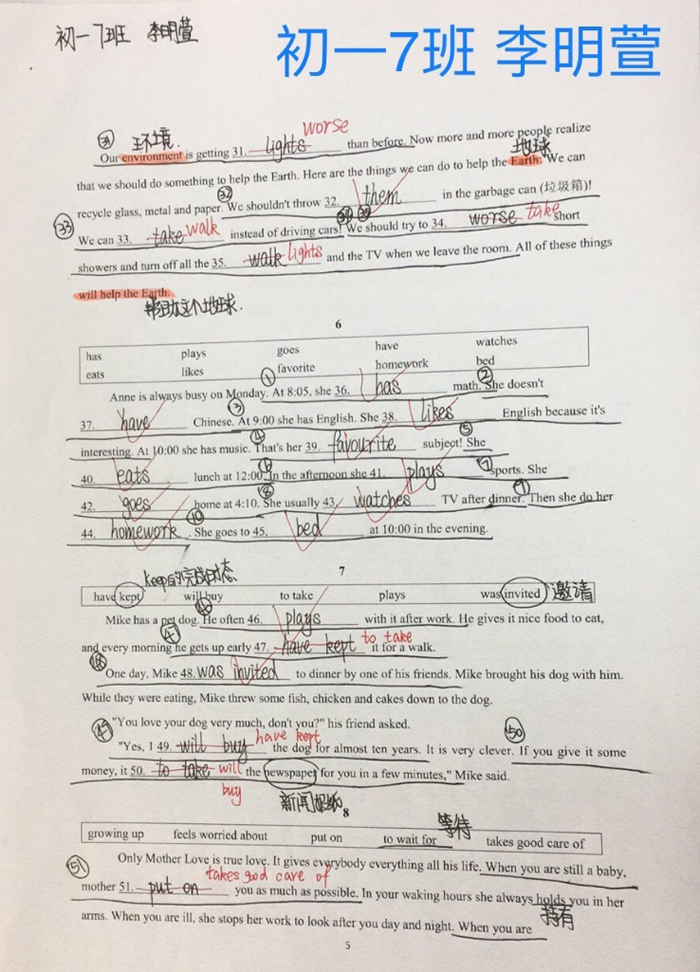 初一7班 李明萱
初一7班 李明萱
worse
31 环境 地球
Our environment is getting 31. lights than before. Now more and more people realize
that we should do something to help the Earth. Here are the things we can do to help the Earth. We can
32
recycle glass, metal and paper. We shouldn't throw 32. them in the garbage can (垃圾箱)!
33 34 35
We can 33. take walk instead of driving cars! We should try to 34. worse take short
showers and turn off all the 35. walk lights and the TV when we leave the room. All of these things
will help the Earth.
帮助这个地球.
6
has plays goes have watches
eats likes favorite homework bed
① ②
Anne is always busy on Monday. At 8:05, she 36. has math. She doesn't
③
37. have Chinese. At 9:00 she has English. She 38. likes English because it's
④ ⑤
interesting. At 10:00 she has music. That's her 39. favourite subject! She
⑥ ⑦
40. eats lunch at 12:00. In the afternoon she 41. plays sports. She
⑧ ⑨
42. goes home at 4:10. She usually 43. watches TV after dinner. Then she do her
⑩
44. homework. She goes to 45. bed at 10:00 in the evening.
7
keep的完成时态
have kept will buy to take plays was invited 邀请
46
Mike has a pet dog. He often 46. plays with it after work. He gives it nice food to eat,
47
and every morning he gets up early 47. have kept to take it for a walk.
48
One day, Mike 48. was invited to dinner by one of his friends. Mike brought his dog with him.
While they were eating, Mike threw some fish, chicken and cakes down to the dog.
49 50
"You love your dog very much, don't you?" his friend asked.
"Yes, I 49. will buy have kept the dog for almost ten years. It is very clever. If you give it some
money, it 50. to take will the newspaper for you in a few minutes," Mike said.
buy
新闻报纸
8
等待
growing up feels worried about put on to wait for takes good care of
51
Only Mother Love is true love. It gives everybody everything all his life. When you are still a baby,
takes good care of
mother 51. put on you as much as possible. In your waking hours she always holds you in her
持有
arms. When you are ill, she stops her work to look after you day and night. When you are
5